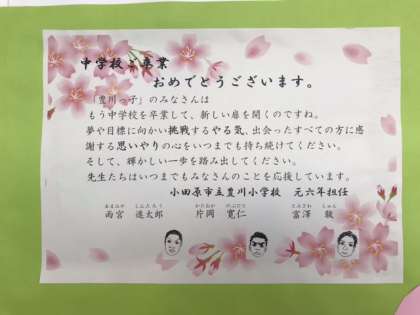 中学校ご卒業
おめでとうございます。
「豊川っ子」のみなさんは
もう中学校を卒業して、新しい扉を開くのですね。
夢や目標に向かい挑戦するやる気、出会ったすべての方に感
謝する思いやりの心をいつまでも持ち続けてください。
そして、輝かしい一歩を踏み出してください。
先生たちはいつまでもみなさんのことを応援しています。
小田原市立豊川小学校 元六年担任
あまみや しんたろう かたおか のぶひと とみざわ しゅん
雨宮 進太郎 片岡 寛仁 富澤 駿